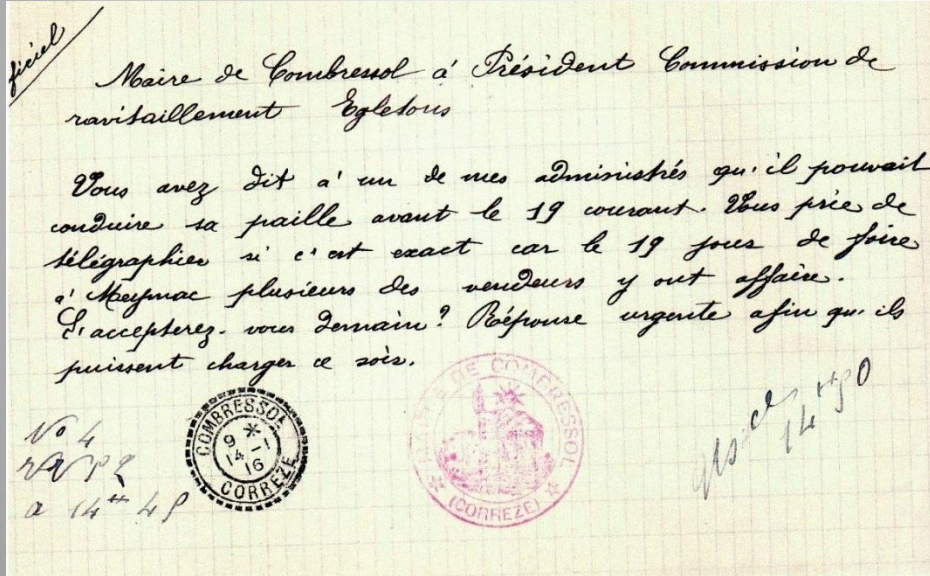 ficiel
Maire de Combressol à Président Commission de
ravitaillement Egletons
Vous avez dit à un de mes administrés qu'il pouvait
conduire sa paille avant le 19 courant. Vous prie de
télégraphier si c'est exact car le 19 jour de foire
à Meymac plusieurs des vendeurs y ont affaire.
L'accepterez-vous demain? Réponse urgente afin qu'ils
puissent charger ce soir.
COMBRESSOL
9 *
14 - 1
16
CORREZE
MAIRIE DE COMBRESSOL
(CORREZE)
No 4
a 14 H 45
14 H 50